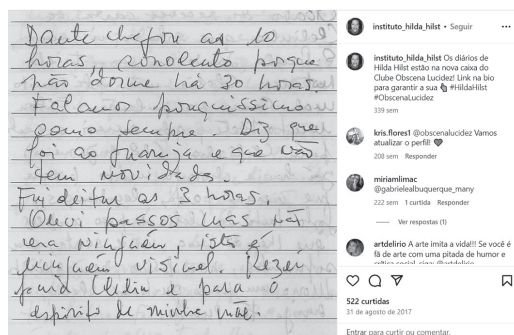 Dante chegou as 10
horas, sonolento porque
não dorme há 30 horas.
Falamos pouquissimo
como sempre. Diz que
foi ao Guarujá e que não
tem novidades.
Fui deitar as 3 horas.
Ouvi passos mas não
era ninguém, isto é
ninguém visível. Rezei
para e para o
espírito de minha mãe.
instituto_hilda_hilst • Seguir
instituto_hilda_hilst Os diários de
Hilda Hilst estão na nova caixa do
Clube Obscena Lucidez! Link na bio
para garantir a sua 👆 #HildaHilst
#ObscenaLucidez
339 sem
kris.flores1 @obscenalucidez Vamos
atualizar o perfil! 🖤
208 sem Responder
miriamlimac
@gabrielealbuquerque_many
222 sem 1 curtida Responder
Ver respostas (1)
artdelirio A arte imita a vida!!! Se você é
fã de arte com uma pitada de humor e
crítica social, siga: @artdelirio
522 curtidas
31 de agosto de 2017
Entrar para curtir ou comentar.